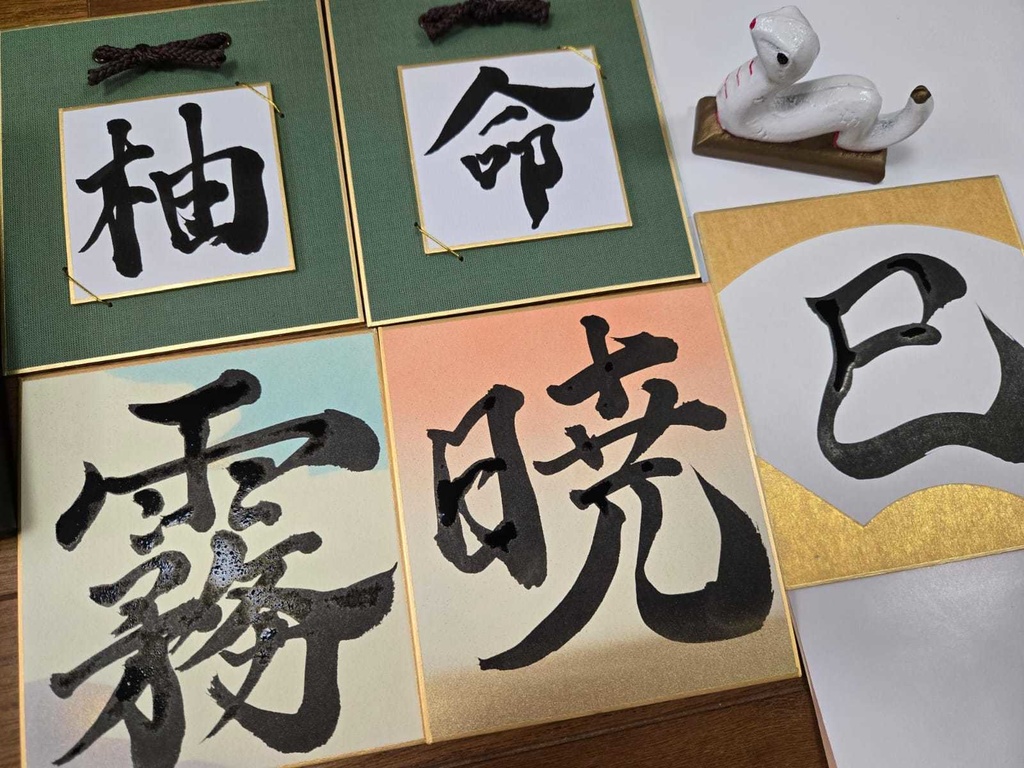 柚
命
霧
暁
巳